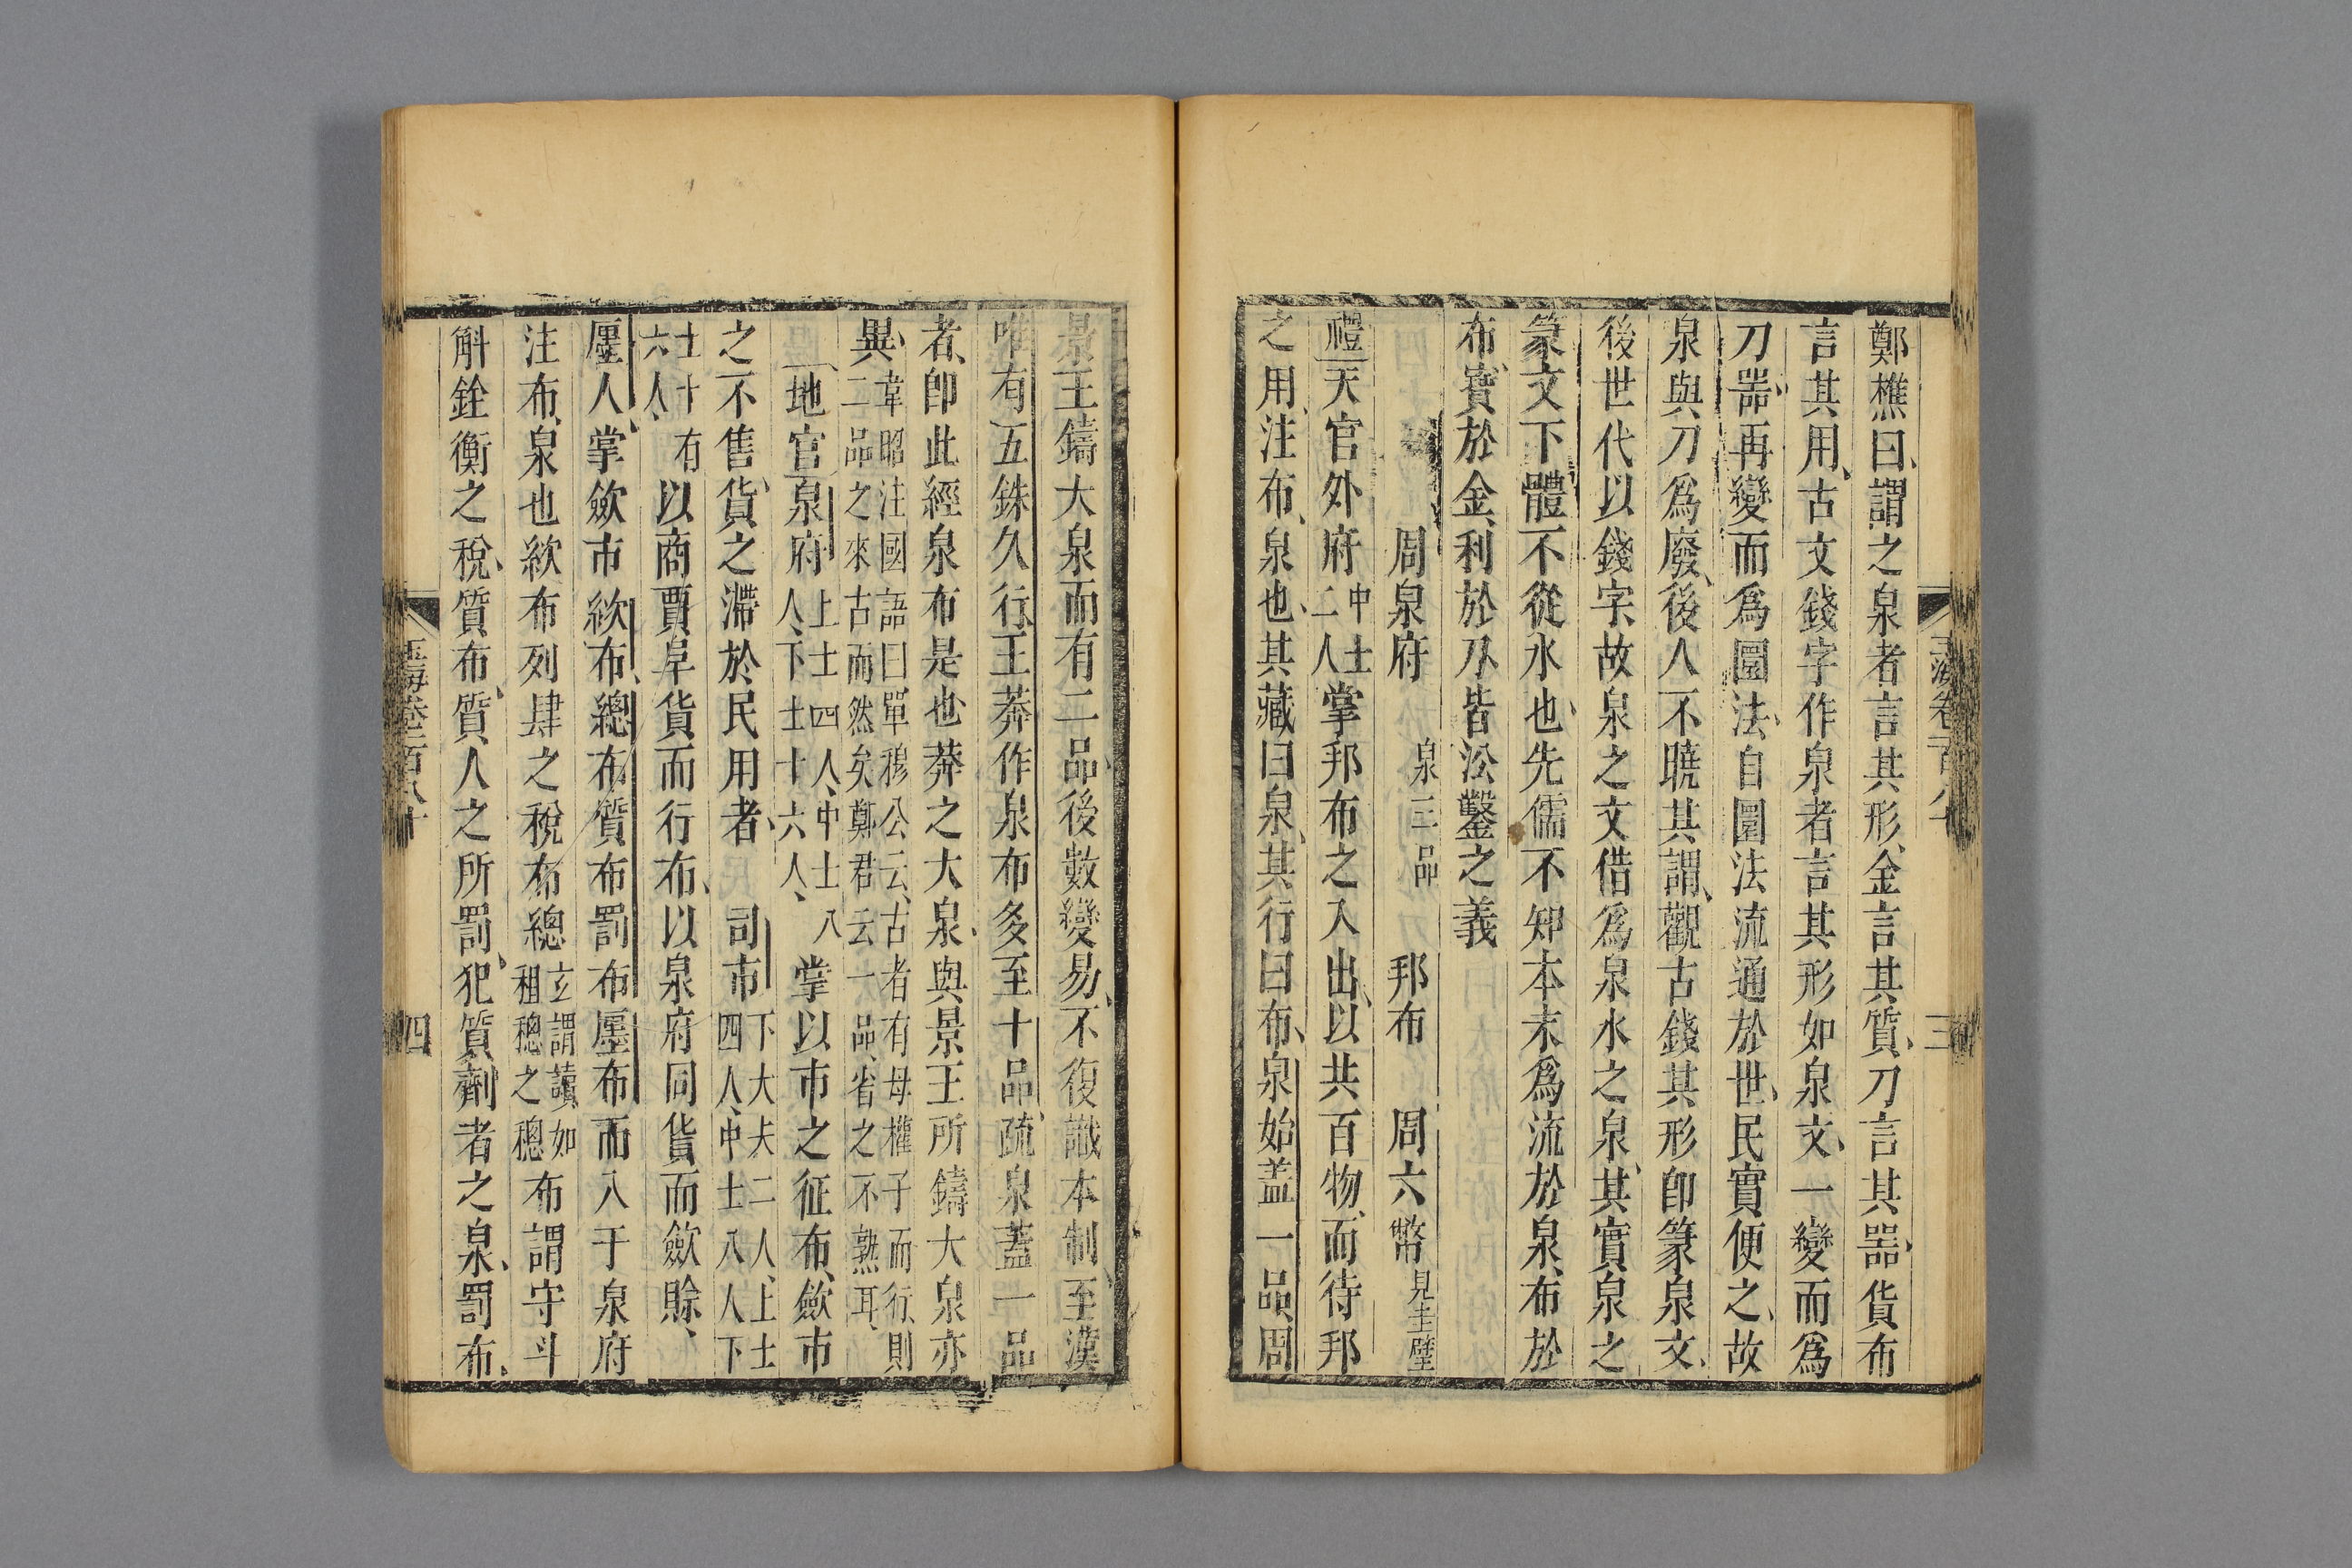 鄭樵曰謂之泉者言其形金言其質刀言其器貨布
言其用古文錢字作泉者言其形如泉文一變而爲
刀器再變而爲圜法自圜法流通於世民實便之故
泉與刀爲廢後人不曉其謂觀古錢其形卽篆泉文
後世代以錢字故泉之文借爲泉水之泉其實泉之
篆文下體不從水也先儒不知本末爲流於泉布於
布寶於金利於刀皆沿鑿之義
周泉府 泉三品 邦布 周六幣 見圭璧
禮天官外府 中士二人 掌邦布之入出以共百物而待邦
之用注布泉也其藏曰泉其行曰布泉始蓋一品周
玉海卷一百八十
三
景王鑄大泉而有二品後數變易不復識本制至漢
唯有五銖久行王莽作泉布多至十品疏泉蓋一品
者卽此經泉布是也莽之大泉與景王所鑄大泉亦
異 韋昭注國語曰單穆公云古者有母權子而行則二品之來古而然矣鄭君云一品省之不熟耳
地官泉府 上士四人中士八人下士十六人 掌以市之征布斂市
之不售貨之滯於民用者 司市 下大夫二人上士四人中士八人下
士十有六人 以商賈阜貨而行布以泉府同貨而斂賒
廛人掌斂市絘布總布質布罰布廛布而入于泉府
注布泉也絘布列肆之稅布總 玄謂讀如租穗之穗 布謂守斗
斛銓衡之稅質布質人之所罰犯質劑者之泉罰布
玉海卷一百八十
四